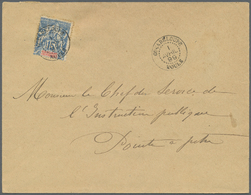 GUADELOUPE
1
99
Monsieur le Chef du Service de
l'Instruction publique
Pointe à pitre